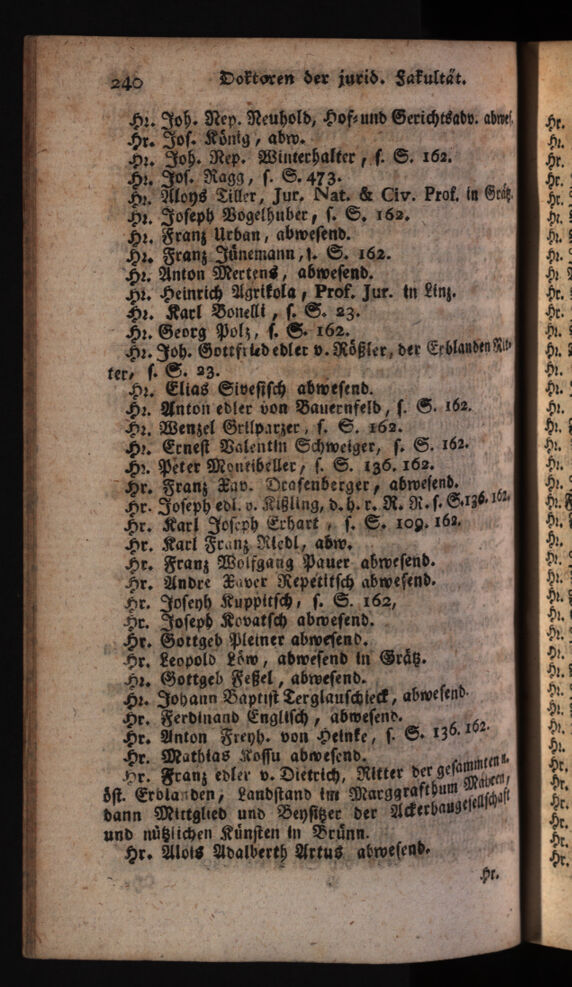 240 Doktoren der jurid. Fakultät.
Hr. Joh. Nep. Neuhold, Hof- und Gerichtsadv. abwes.
Hr. Jos. König, abw.
Hr. Joh. Nep. Winterhalter, s. S. 162.
Hr. Jos. Ragg, s. S. 473.
Hr. Aloys Tiller, Jur. Nat. & Civ. Prof. in Grätz.
Hr. Joseph Vogelhuber, s. S. 162.
Hr. Franz Urban, abwesend.
Hr. Franz Jünemann, s. S. 162.
Hr. Anton Mertens, abwesend.
Hr. Heinrich Agrikola, Prof. Jur. in Linz.
Hr. Karl Bonelli, s. S. 23.
Hr. Georg Polz, s. S. 162.
Hr. Joh. Gottfried edler v. Rößler, der Erblanden Rit-
ter, s. S. 23.
Hr. Elias Sivesisch abwesend.
Hr. Anton edler von Bauernfeld, s. S. 162.
Hr. Wenzel Grilparzer, s. S. 162.
Hr. Ernest Valentin Schweiger, s. S. 162.
Hr. Peter Montibeller, s. S. 136. 162.
Hr. Franz Xav. Drafenberger, abwesend.
Hr. Joseph edl. v. Kißling, d. h. r. R. R. s. S. 136. 162.
Hr. Karl Joseph Erhart, s. S. 109. 162.
Hr. Karl Franz Riedl, abw.
Hr. Franz Wolfgang Pauer abwesend.
Hr. Andre Xaver Repetitsch abwesend.
Hr. Joseph Kuppitsch, s. S. 162,
Hr. Joseph Kovatsch abwesend.
Hr. Gottgeb Pleiner abwesend.
Hr. Leopold Löw, abwesend in Grätz.
Hr. Gottgeb Feßel, abwesend.
Hr. Johann Baptist Terglauschieck, abwesend.
Hr. Ferdinand Englisch, abwesend.
Hr. Anton Freyh. von Heinke, s. S. 136. 162.
Hr. Mathias Kossu abwesend.
Hr. Franz edler v. Dietrich, Ritter der gesammten n.
öst. Erblanden, Landstand im Marggrafthum Mähren,
dann Mittglied und Beysitzer der Ackerbaugesellschaft
und nützlichen Künsten in Brünn.
Hr. Alois Adalberth Artus abwesend.
Hr.